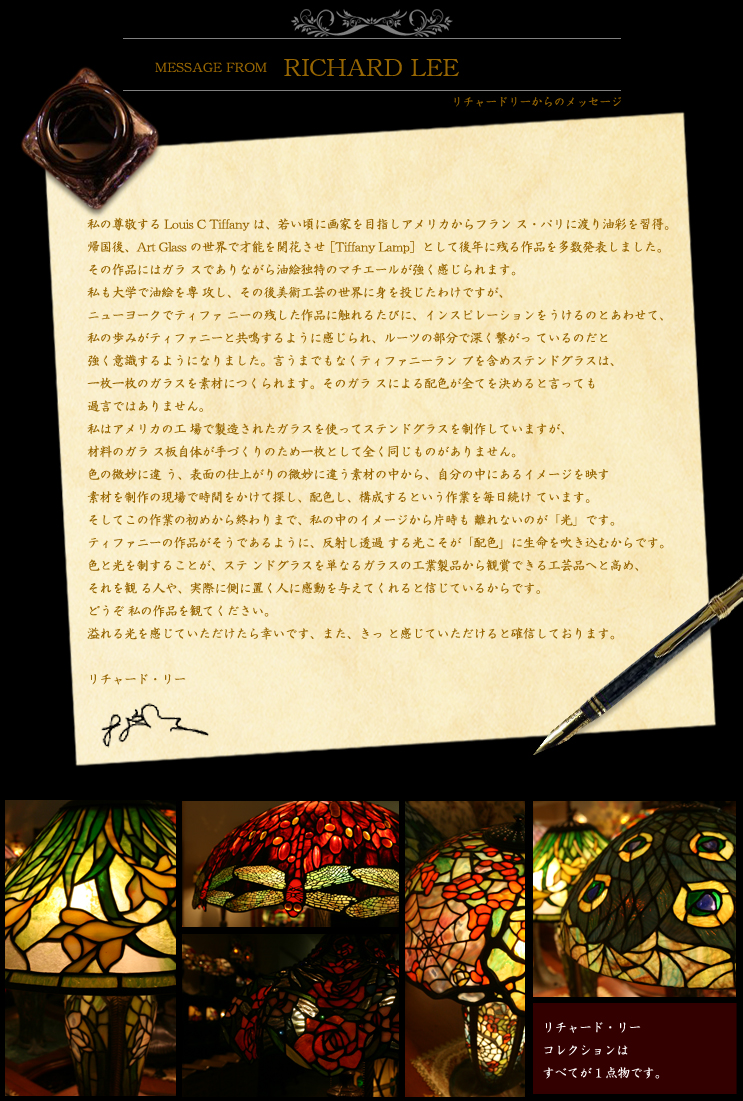 MESSAGE FROM RICHARD LEE
リチャードリーからのメッセージ
私の尊敬する Louis C Tiffany は、若い頃に画家を目指しアメリカからフラン ス・パリに渡り油彩を習得。
帰国後、Art Glass の世界で才能を開花させ [Tiffany Lamp] として後年に残る作品を多数発表しました。
その作品にはガラ スでありながら油絵独特のマチエールが強く感じられます。
私も大学で油絵を専 攻し、その後美術工芸の世界に身を投じたわけですが、
ニューヨークでティファ ニーの残した作品に触れるたびに、インスピレーションをうけるのとあわせて、
私の歩みがティファニーと共鳴するように感じられ、ルーツの部分で深く繋がっ ているのだと
強く意識するようになりました。言うまでもなくティファニーラン プを含めステンドグラスは、
一枚一枚のガラスを素材につくられます。そのガラ スによる配色が全てを決めると言っても
過言ではありません。
私はアメリカの工 場で製造されたガラスを使ってステンドグラスを制作していますが、
材料のガラ ス板自体が手づくりのため一枚として全く同じものがありません。
色の微妙に違 う、表面の仕上がりの微妙に違う素材の中から、自分の中にあるイメージを映す
素材を制作の現場で時間をかけて探し、配色し、構成するという作業を毎日続け ています。
そしてこの作業の初めから終わりまで、私の中のイメージから片時も 離れないのが「光」です。
ティファニーの作品がそうであるように、反射し透過 する光こそが「配色」に生命を吹き込むからです。
色と光を制することが、ステ ンドグラスを単なるガラスの工業製品から観賞できる工芸品へと高め、
それを観 る人や、実際に側に置く人に感動を与えてくれると信じているからです。
どうぞ 私の作品を観てください。
溢れる光を感じていただけたら幸いです、また、きっ と感じていただけると確信しております。
リチャード・リー
リチャード・リー
コレクションは
すべてが1点物です。